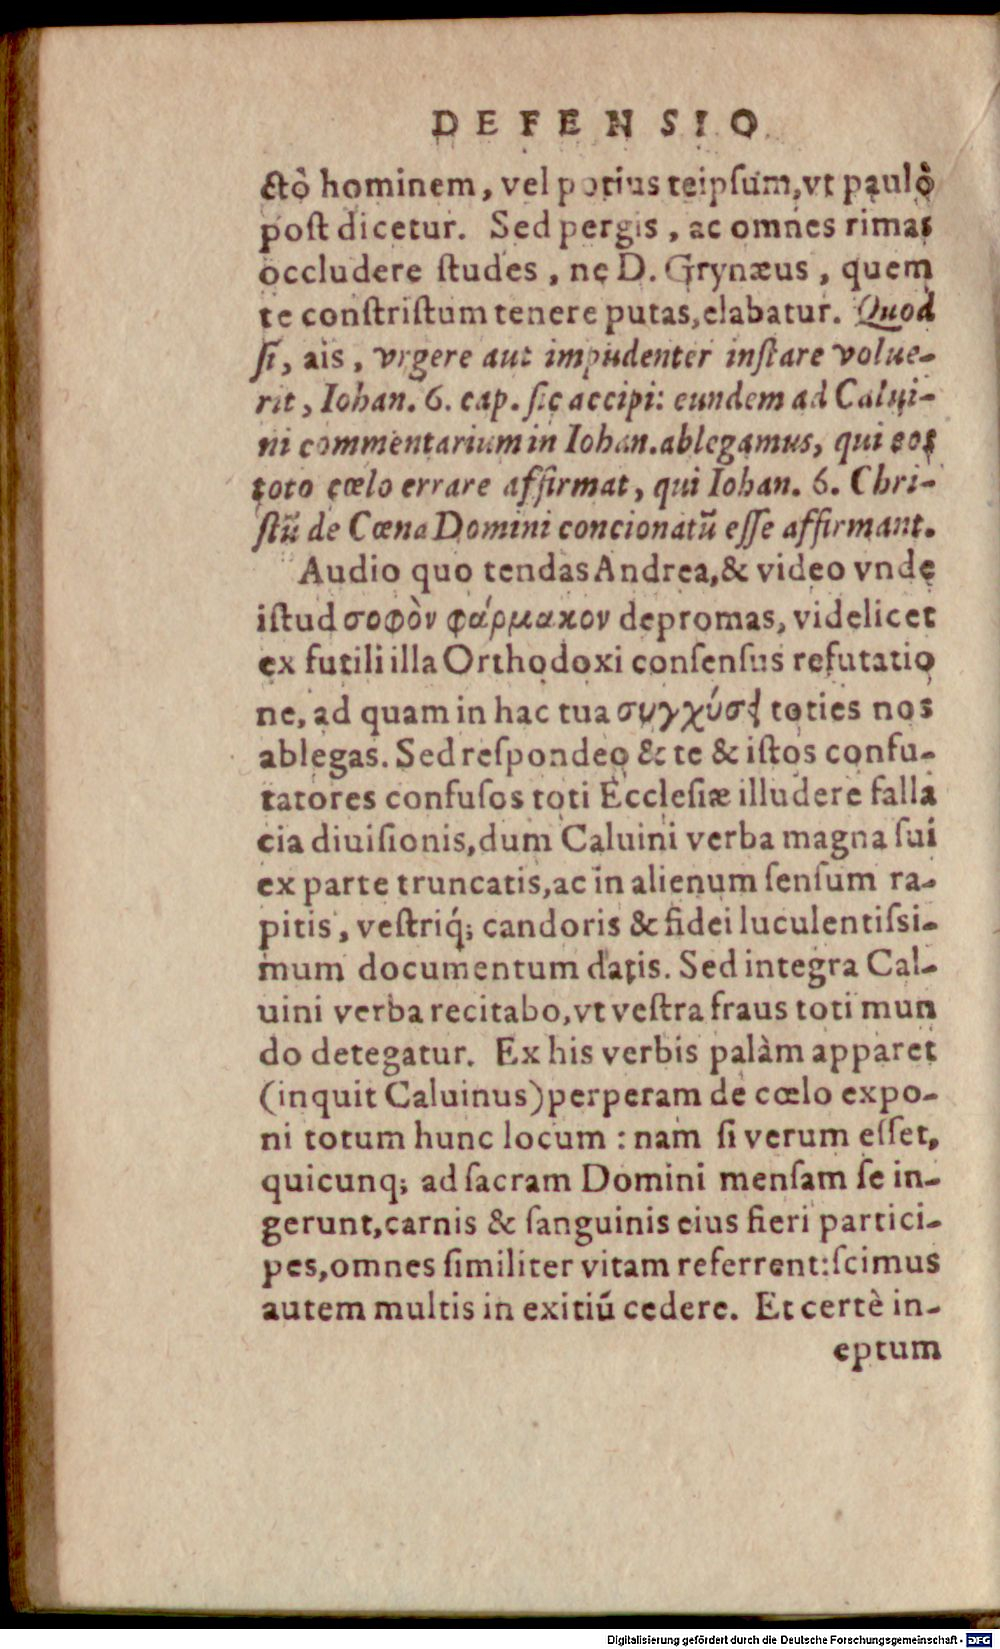 DEFENSIO
ctò hominem, vel potius teipsum, vt paulò
post dicetur. Sed pergis, ac omnes rimas
occludere studes, ne D. Grynæus, quem
te constristum tenere putas, elabatur. Quod
si, ais, vrgere aut impudenter instare volue-
rit, Iohan. 6. cap. sic accipi: eundem ad Calui-
ni commentarium in Iohan. ablegamus, qui eos
toto cœlo errare affirmat, qui Iohan. 6. Chri-
stũ de Cœna Domini concionatũ esse affirmant.
Audio quo tendas Andrea, & video vnde
istud σοφὸν φάρμακον depromas, videlicet
ex futili illa Orthodoxi consensus refutatio
ne, ad quam in hac tua συγχύσει toties nos
ablegas. Sed respondeo & te & istos confu-
tatores confusos toti Ecclesiæ illudere falla
cia diuisionis, dum Caluini verba magna sui
ex parte truncatis, ac in alienum sensum ra-
pitis, vestriq́; candoris & fidei luculentissi-
mum documentum datis. Sed integra Cal-
uini verba recitabo, vt vestra fraus toti mun
do detegatur. Ex his verbis palàm apparet
(inquit Caluinus) perperam de cœlo expo-
ni totum hunc locum : nam si verum esset,
quicunq; ad sacram Domini mensam se in-
gerunt, carnis & sanguinis eius fieri partici-
pes, omnes similiter vitam referrent: scimus
autem multis in exitiũ cedere. Et certè in-
eptum
Digitalisierung gefördert durch die Deutsche Forschungsgemeinschaft - DFG